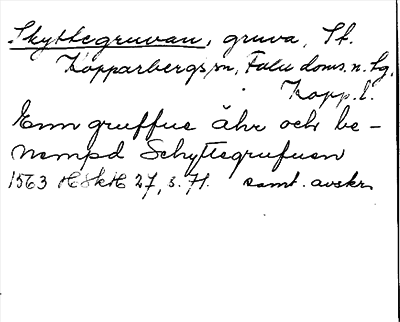 Skyttegruvan, gruva, St.
Kopparbergs sn, Falu doms. n. tg.
Kopp. l.
Enn gruffue ähr och be-
nempd Schyttegrufuen
1563 HSkH 27, s. 71. samt. avskr.